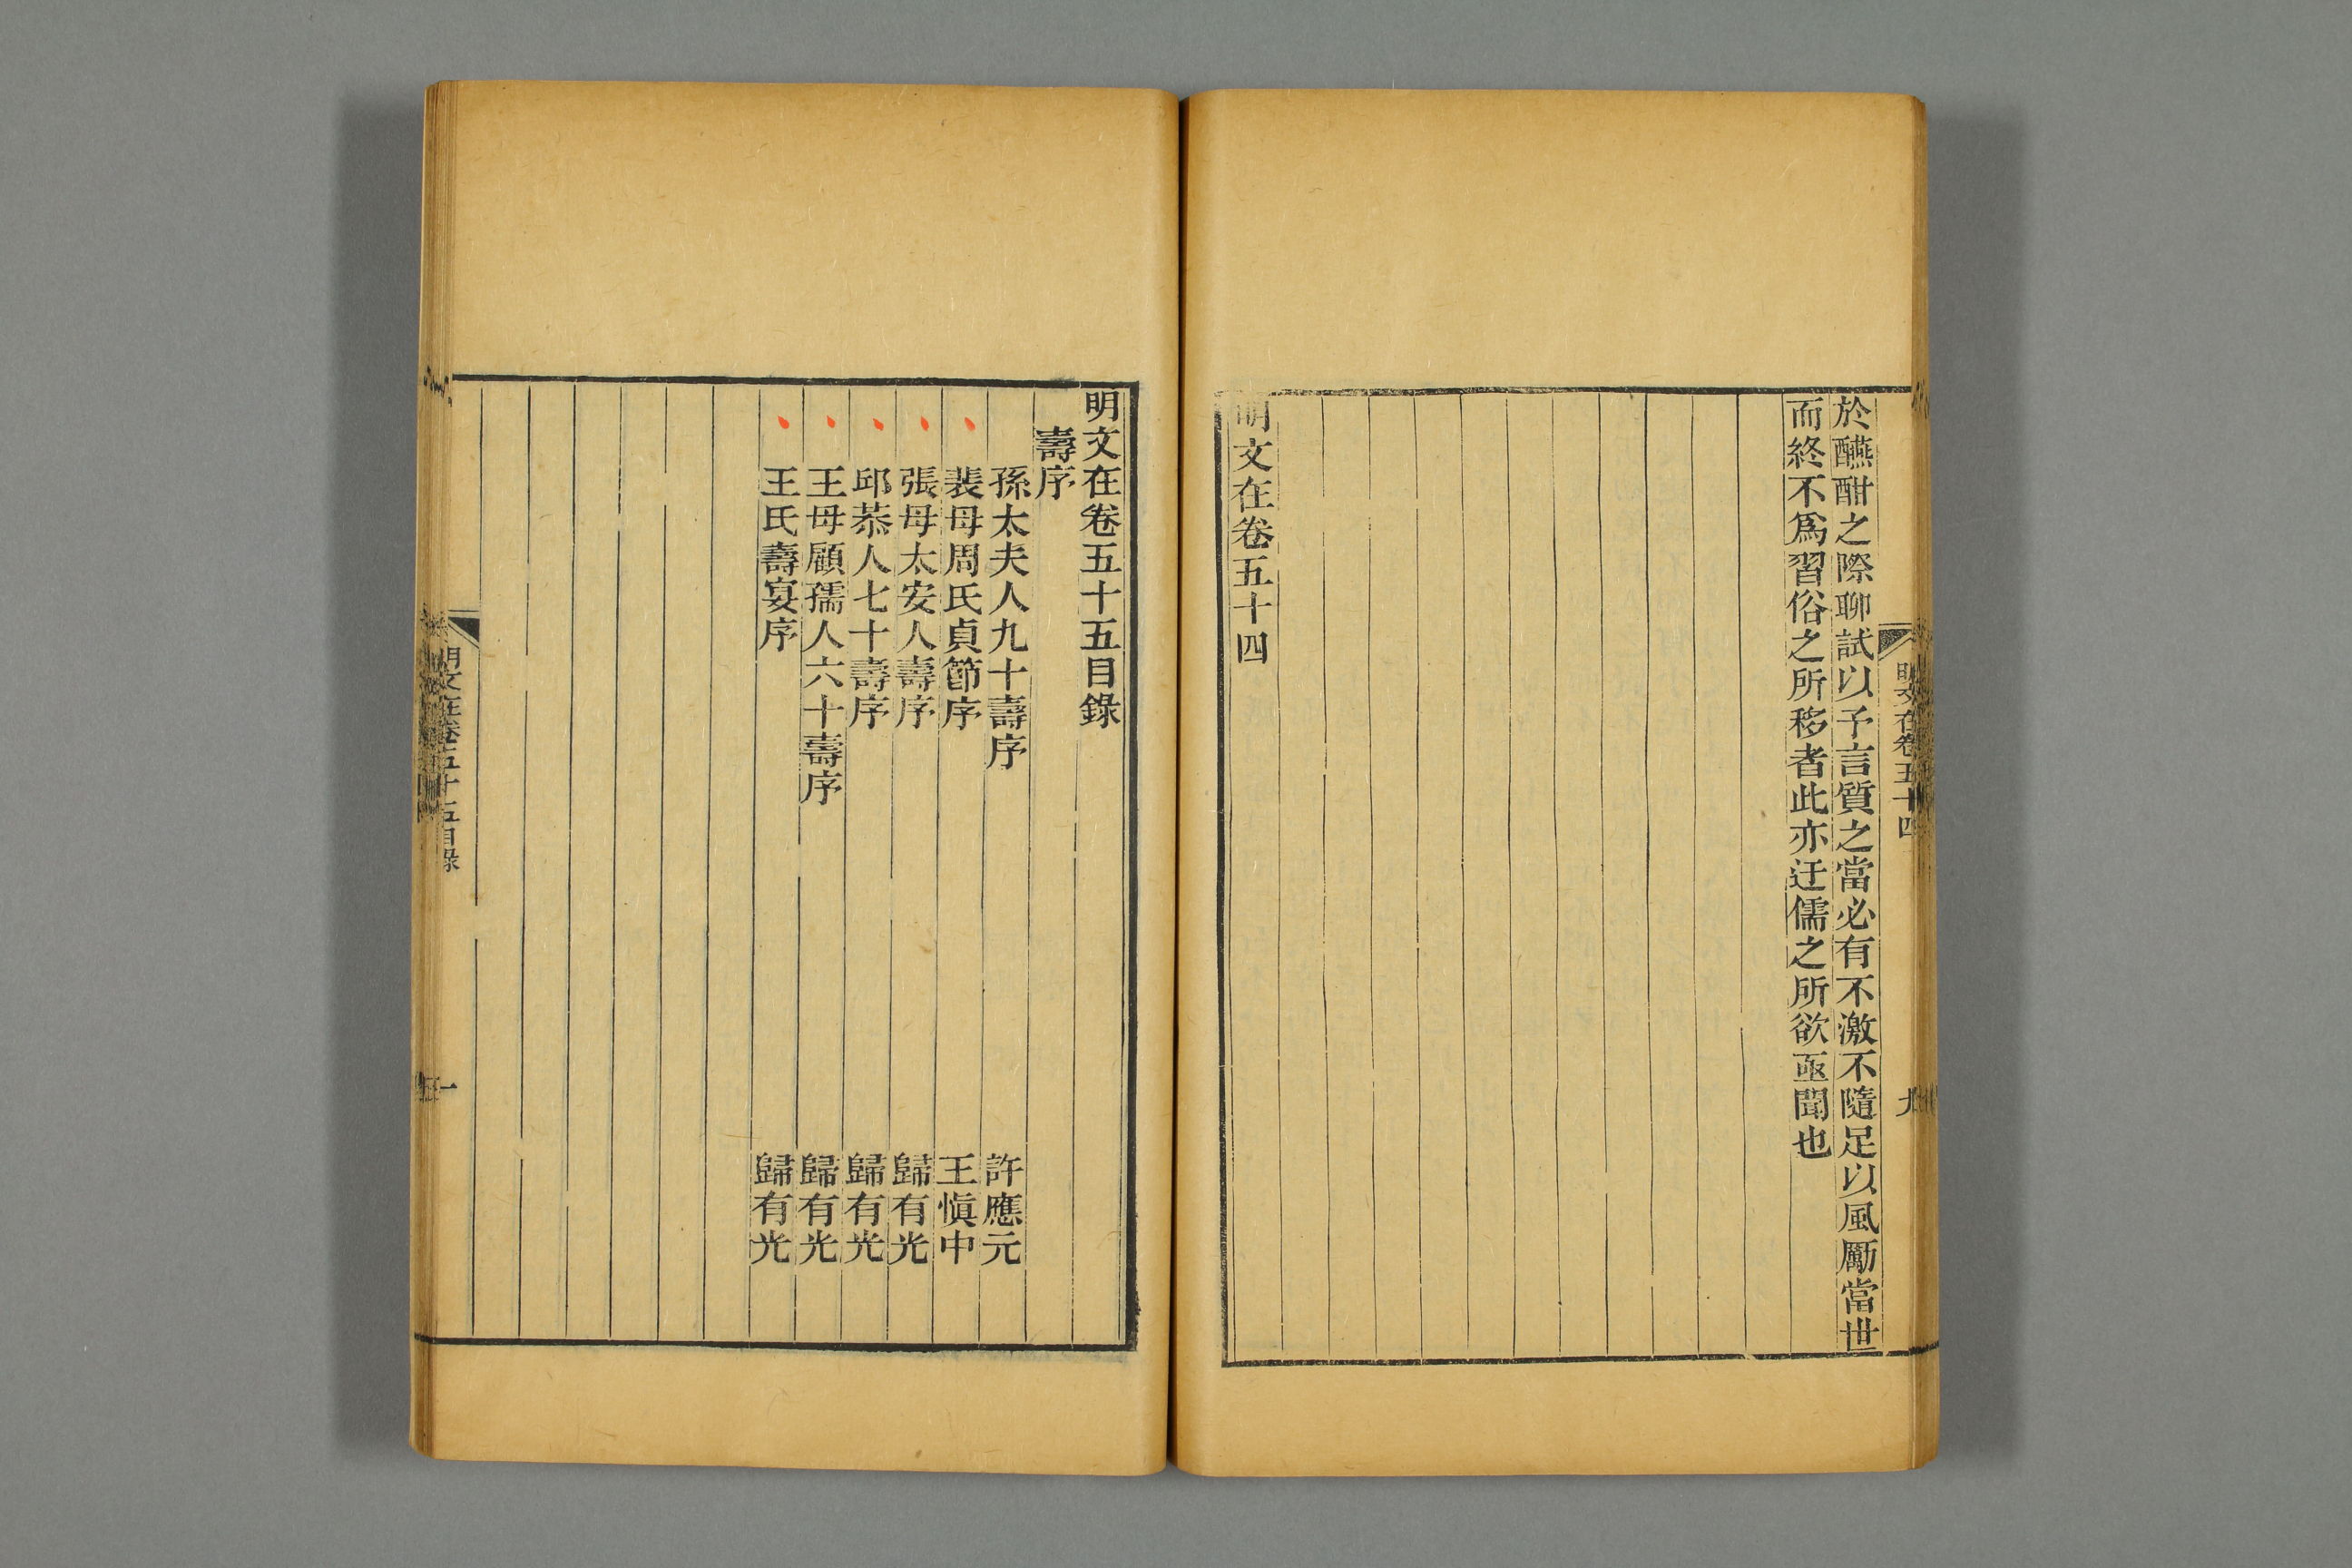 明文在卷五十四
九
於醼酣之際聊試以予言質之當必有不激不隨足以風厲當世
而終不爲習俗之所移者此亦迂儒之所欲亟聞也
明文在卷五十四
明文在卷五十五目錄
壽序
孫太夫人九十壽序 許應元
裴母周氏貞節序 王愼中
張母太安人壽序 歸有光
邱恭人七十壽序 歸有光
王母顧孺人六十壽序 歸有光
王氏壽宴序 歸有光
明文在卷五十五目錄
一